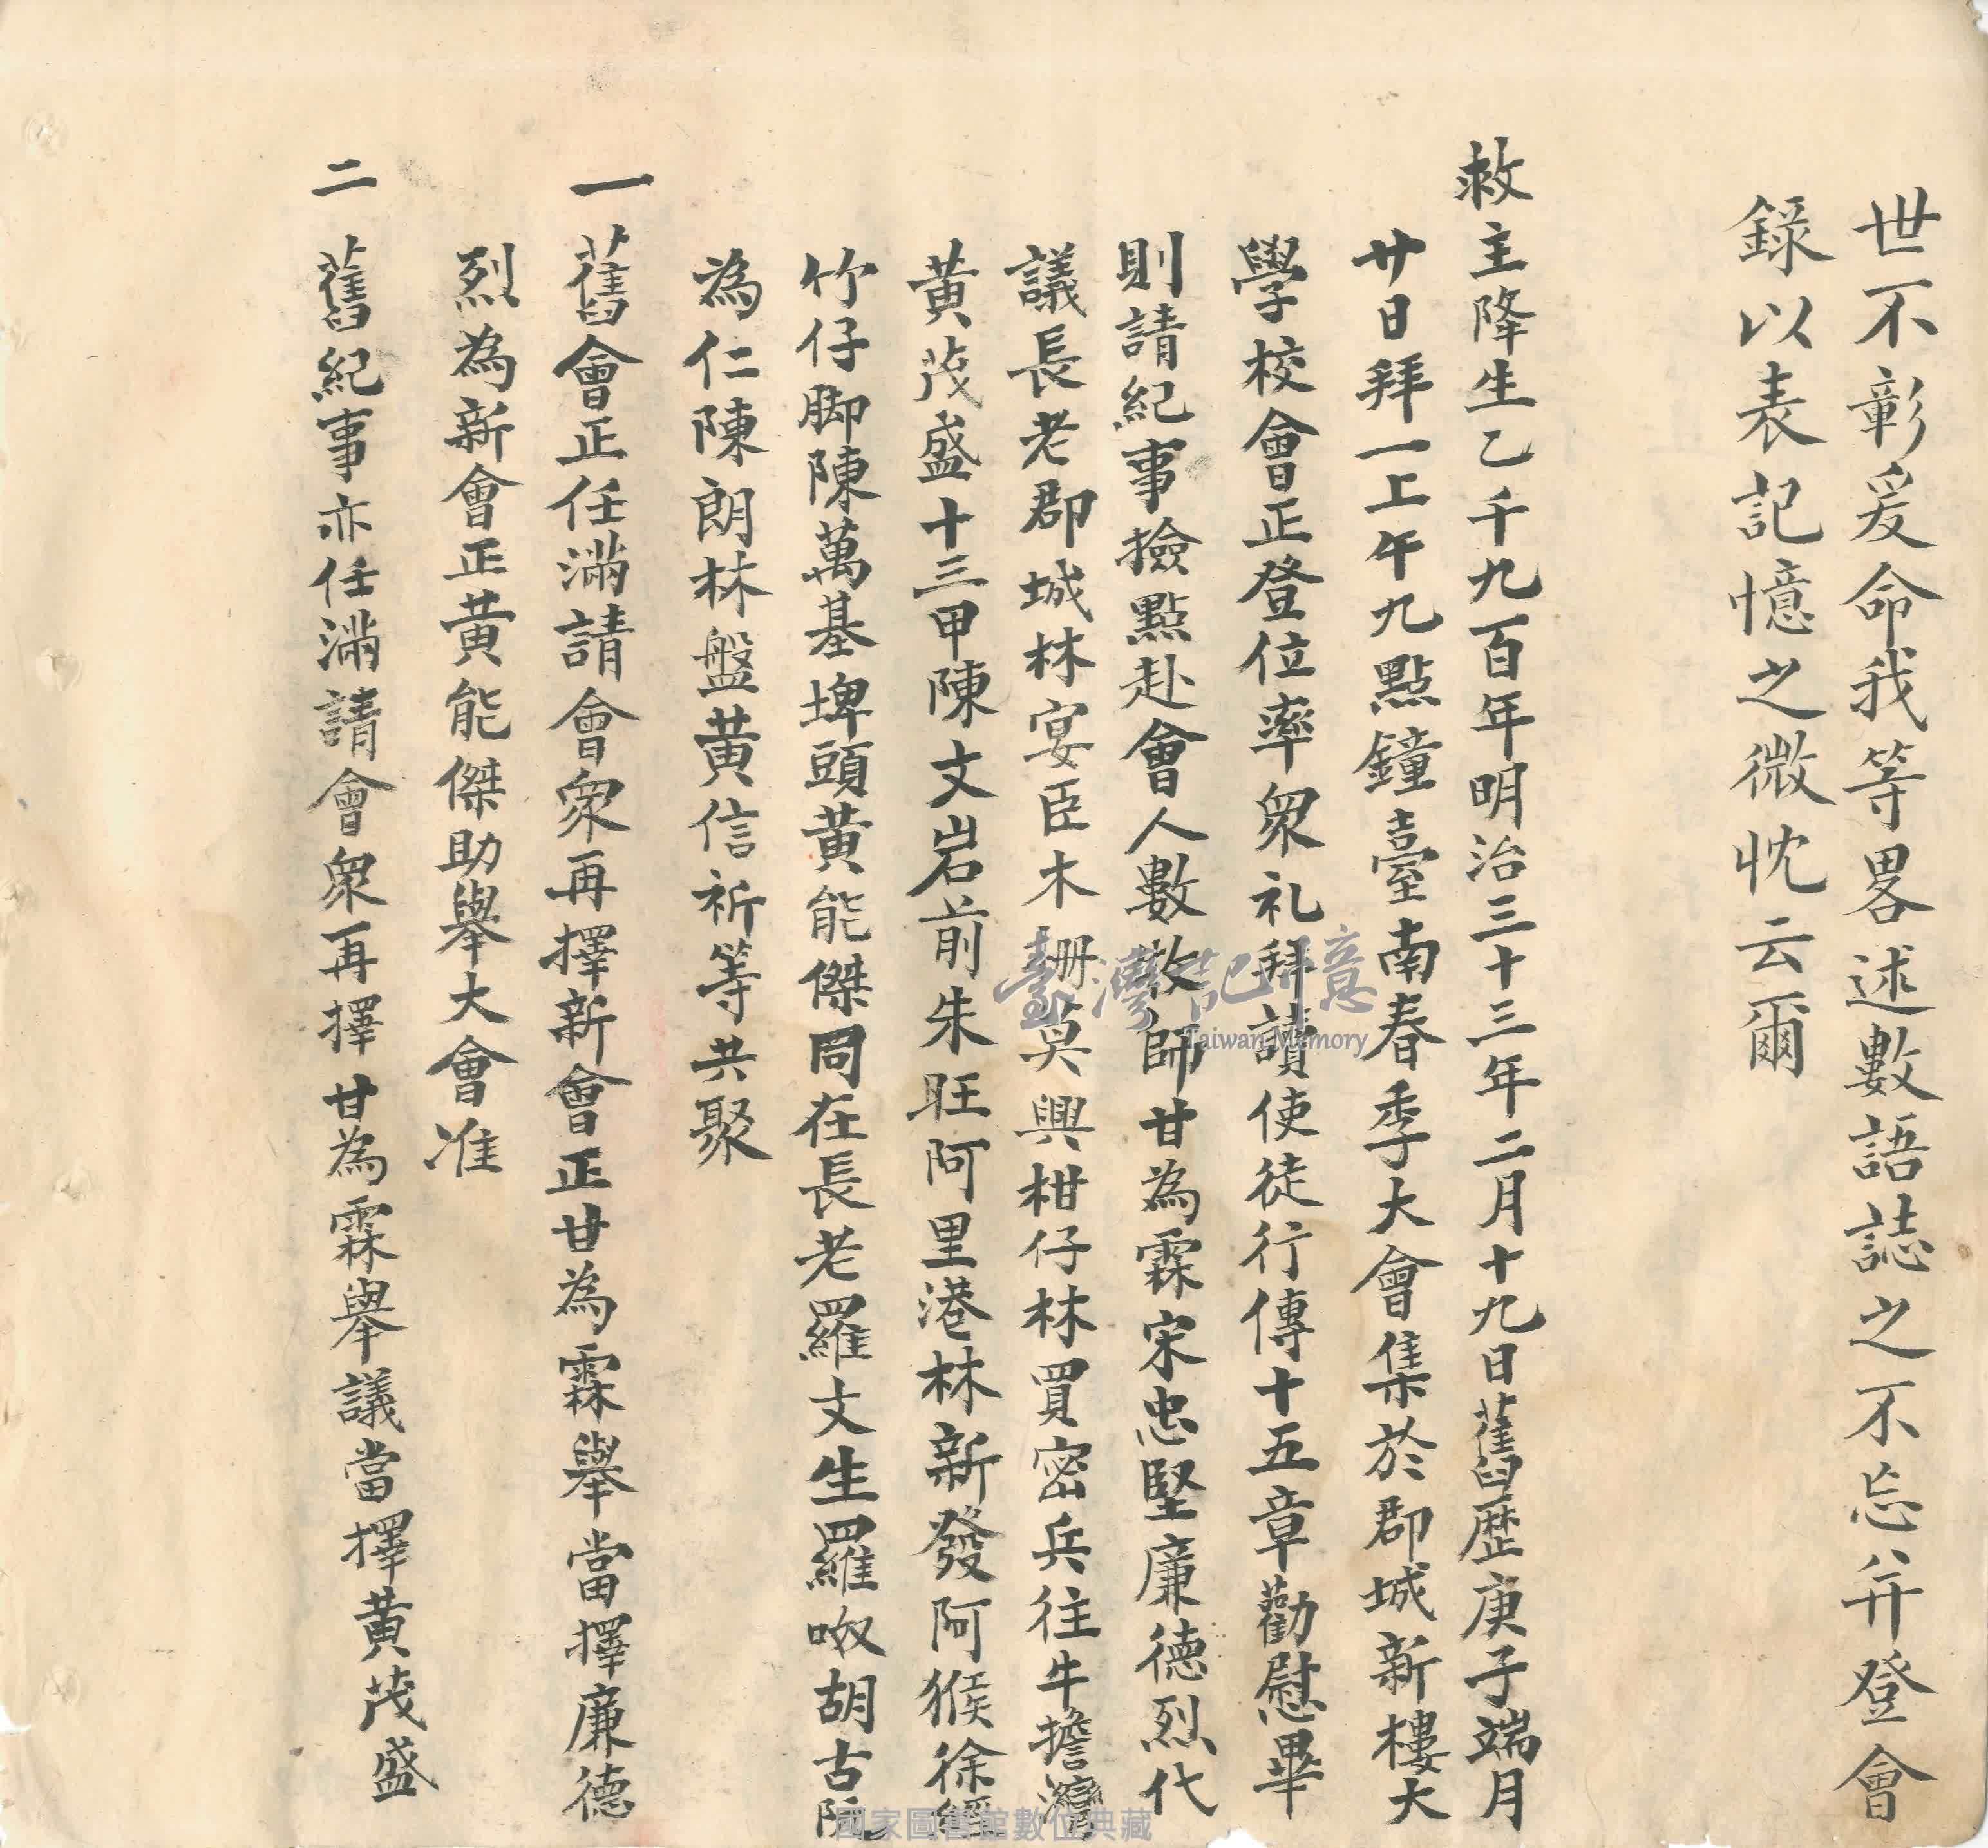 世不彰爰命我等畧述數語誌之不忘并登會
錄以表記憶之微忱云爾
救主降生乙千九百年明治三十三年二月十九日舊歷庚子端月
廿日拜一上午九點鐘臺南春季大會集於郡城新樓大
學校會正登位率衆礼拜讀使徒行傳十五章勸慰畢
則請紀事撿點赴會人數教師甘為霖宋忠堅廉德烈代
議長老郡城林宴臣木柵莫興柑仔林買密兵往牛擔灣
黃茂盛十三甲陳文岩前朱旺阿里港林新發阿猴徐經
竹仔脚陳萬基埤頭黃能傑同在長老羅文生羅呶胡古
為仁陳朗林盤黃信祈等共聚
一 舊會正任滿請會衆再擇新會正甘為霖舉當擇廉德
烈為新會正黃能傑助舉大會准
二 舊紀事亦任滿請會衆再擇甘為霖舉議當擇黃茂盛
臺灣記憶
Taiwan Memory
國家圖書館數位典藏